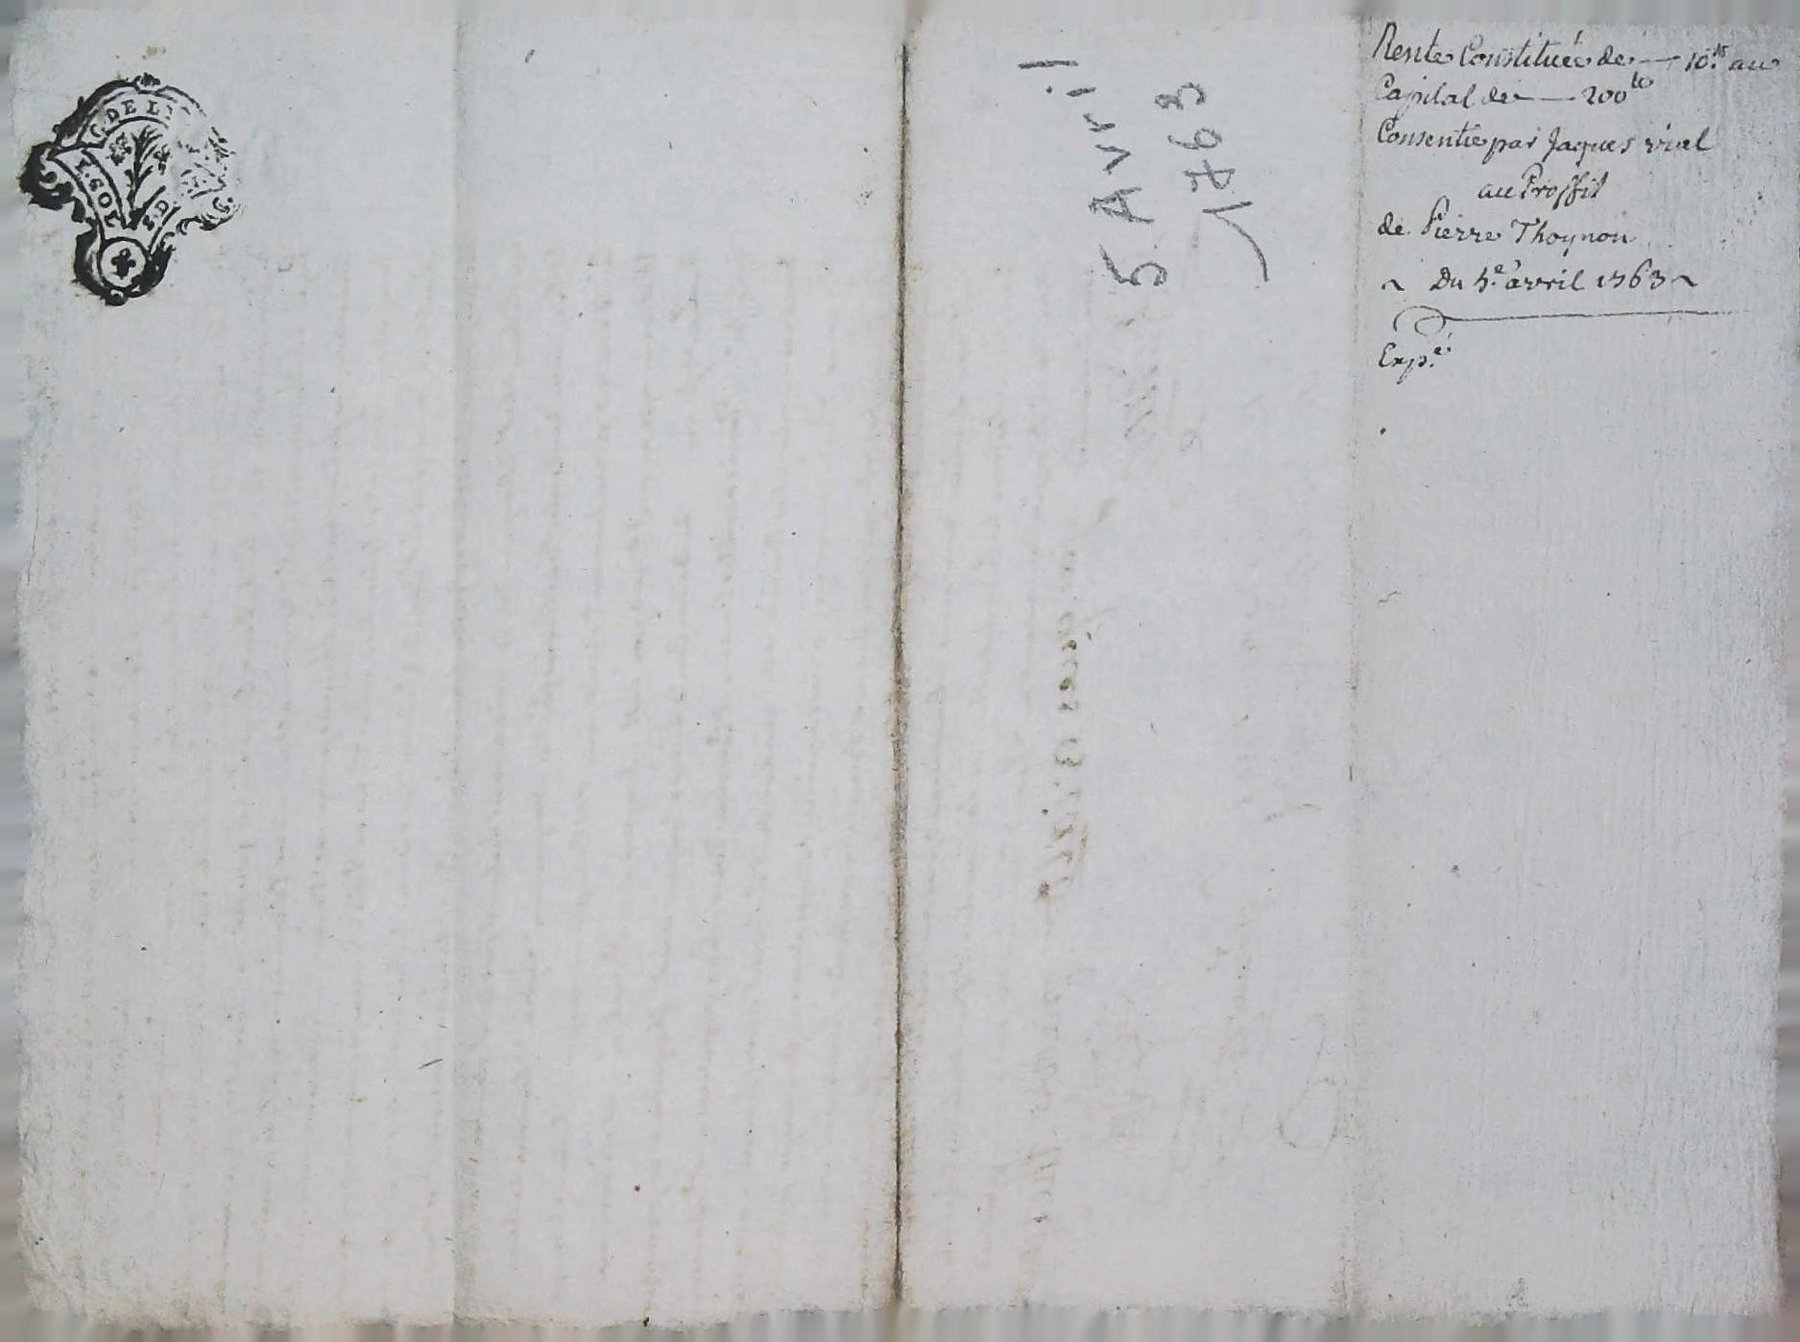 G. DE L
1. SOL
5 Avril
1763
Rente Constituée de — 10.ᵗˢ au
Capital de — 200ᵗᵗ
Consentie par Jaques vial
au Proffit
de Pierre Thoynon
~ Du 5.e avril 1763 ~
Exp.é